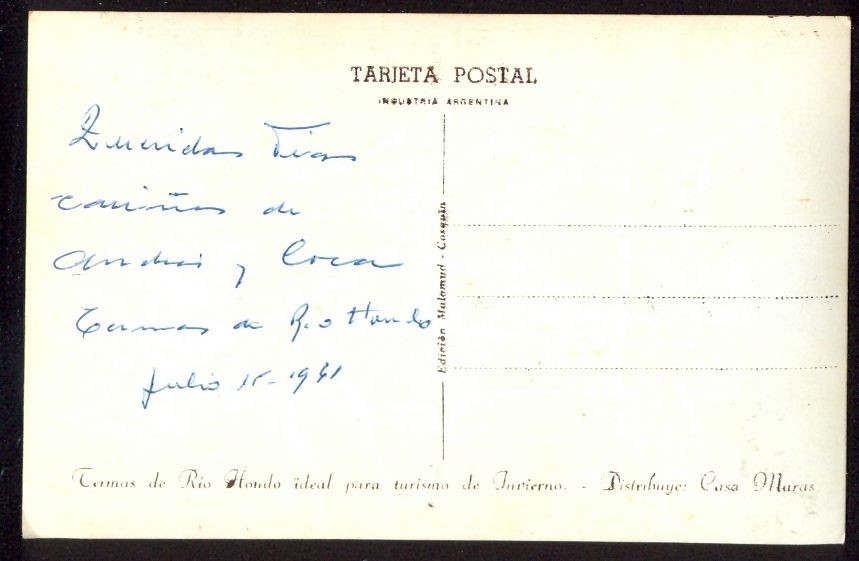 TARJETA POSTAL
INDUSTRIA ARGENTINA
Queridas Tias
cariños de
Andrés y Coca
Termas de Rio Hondo
Julio 15-1961
Edición Malamud - Cosquin
Termas de Río Hondo ideal para turismo de Invierno. - Distribuye: Casa Maras